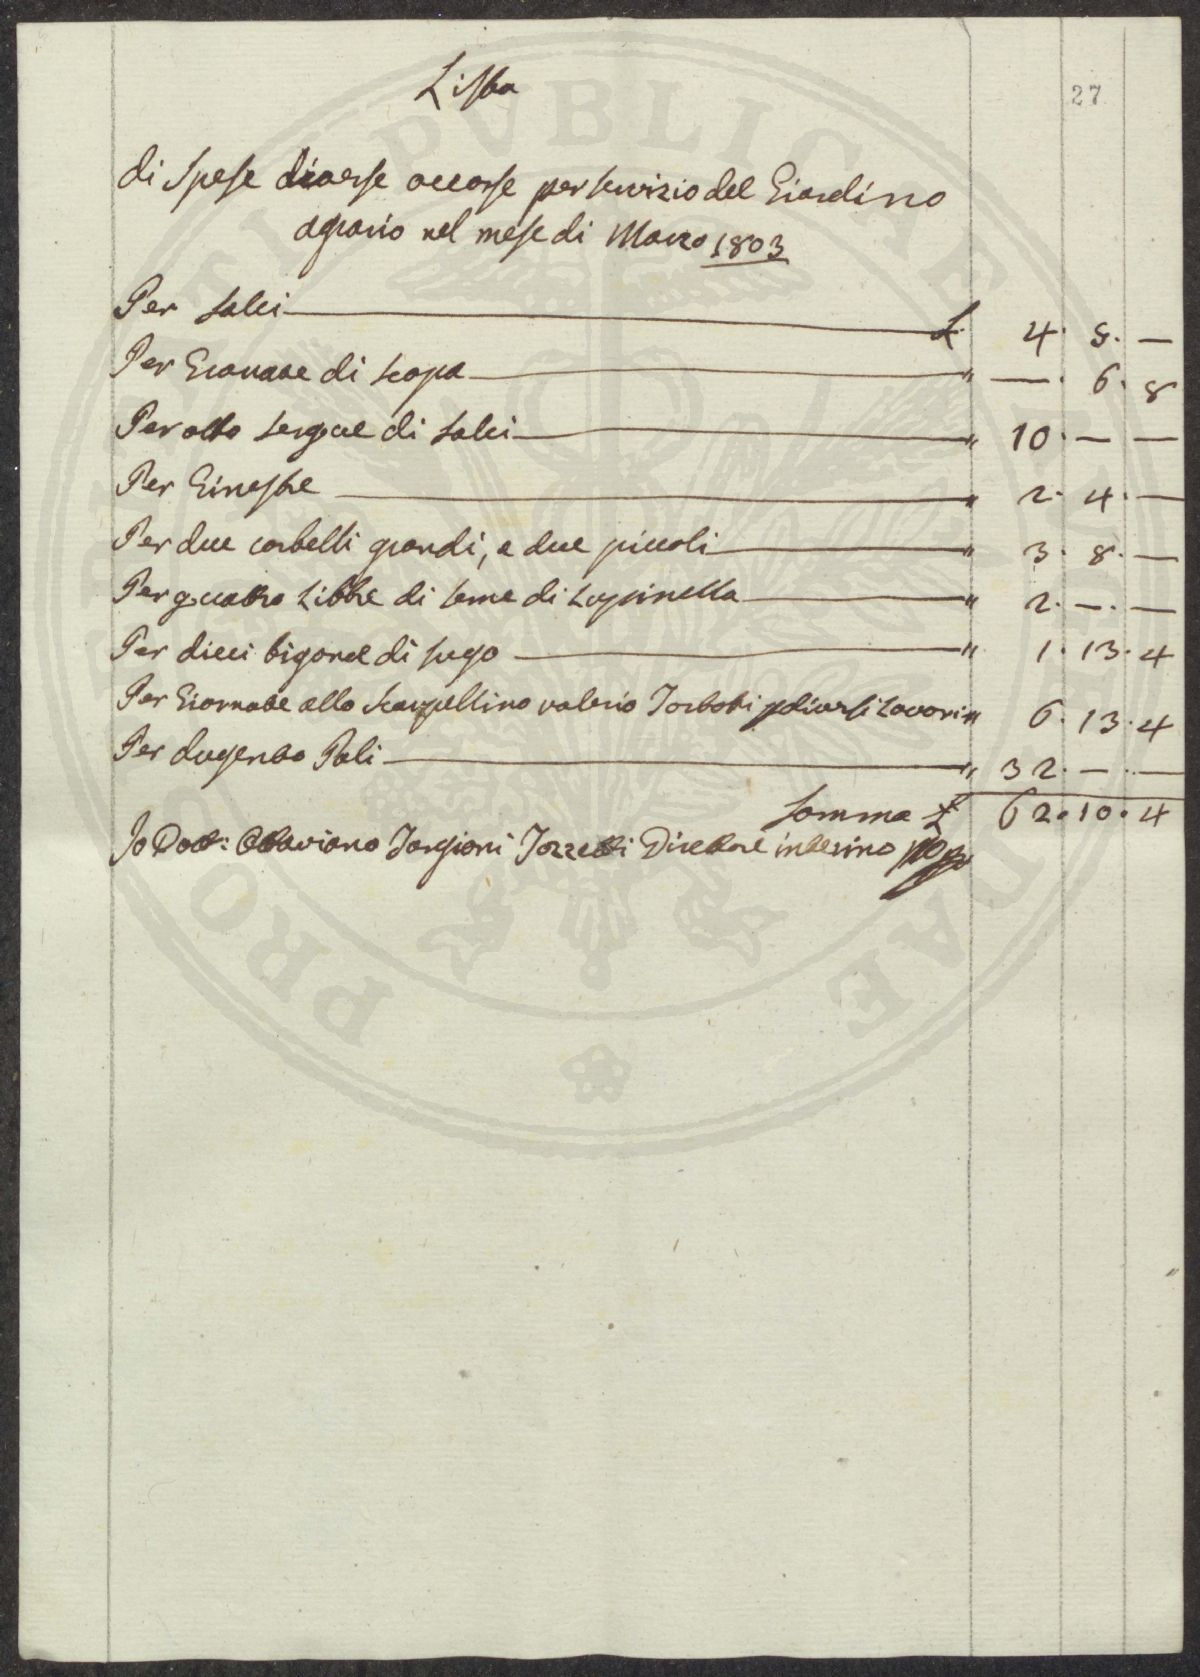 27
Lista
di Spese diverse occorse per servizio del Giardino
agrario nel mese di Marzo 1803
Per salci £ 4. 5. —
Per Granate di scopa " —. 6. 8
Per otto serque di salci " 10. — —
Per Ginestre " 2. 4. —
Per due corbelli grandi, e due piccoli " 3. 8. —
Per quattro Libbre di seme di Lupinella " 2. —. —
Per dieci bigonce di sugo " 1. 13. 4
Per Giornate allo Scarpellino Valerio p diversi Lavori " 6. 13. 4
Per dugento Pali " 32. — —
Somma £ 62. 10. 4
Io Dott: Ottaviano Targioni Tozzetti Direttore interino
PROSPERITATI PVBLICAE AVGENDAE